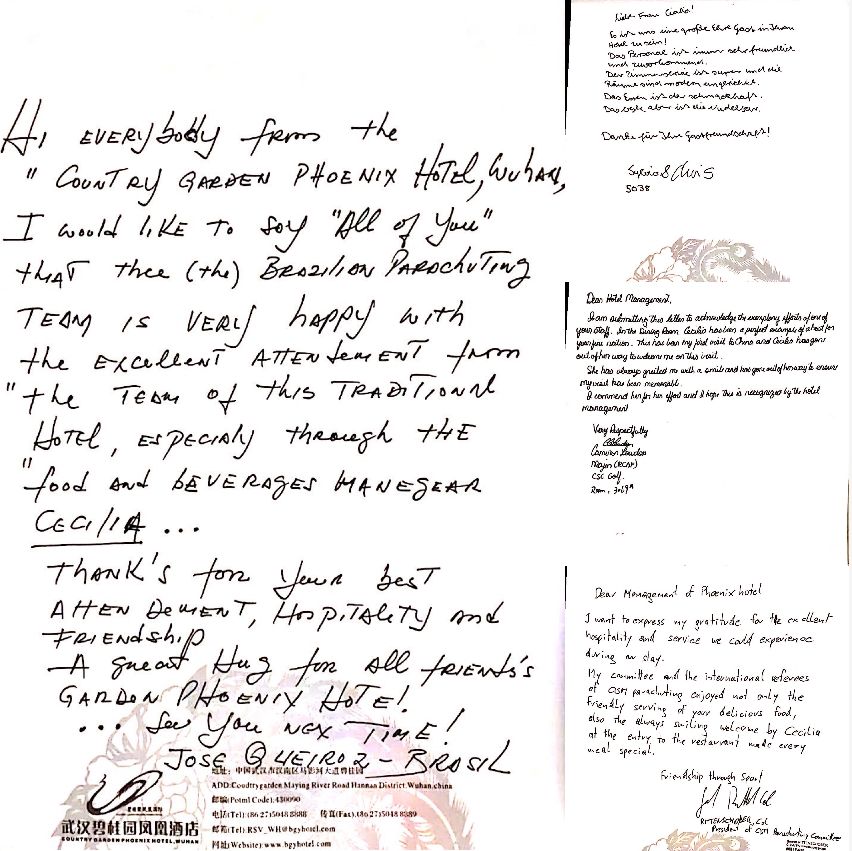 Hi EVERybody from the
" COUNTRY GARDEN PHOENIX HOTEL, WUHAN,
I would like to say "All of You"
that thee (the) BRAZILIAN PARACHUTING
TEAM IS VERY happy with
the EXCELLENT ATTENDEMENT from
"the TEAM of this TRADITIONAL
HOTEL, ESPECIALY through THE
"food AND BEVERAGES MANEGEAR
CECILIA ...
THANK'S for your best
ATTENDEMENT, HOSPITALITY and
FRIENDSHIP
- A great Hug for All FRIENDS's
GARDEN PHOENIX HOTE!
... See You NEX TIME!
JOSE QUEIROZ - BRASIL
地址: 中国武汉市汉南区马影河大道碧桂园
ADD:Coudtrygarden Maying River Road Hannan District Wuhan,china
邮编(Potml Code):430090
电话(Tel):(86 27)5048 8888 传真(Fax).(86 27)5048 8889
邮箱(Tel): RSV_WH@bgyhotel.com
网址(Website):www.bgyhotel.com
碧桂园凤凰国际
武汉碧桂园凤凰酒店
COUNTRY GARDEN PHOENIX HOTEL, WUHAN
Liebe Frau Cecilia!
Es ist uns eine große Ehre Gast in Ihrem
Hotel zu sein!
Das Personal ist immer sehr freundlich
und zuvorkommend.
Der Zimmerservice ist super und die
Räume sind modern eingerichtet.
Das Essen ist sehr schmackhaft.
Das beste aber ist die
Danke für Ihre Gastfreundschaft!
Sylvia & Chris
5038
Dear Hotel Management,
I am submitting this letter to acknowledge the exemplary efforts of one of
your staff. In the Dining Room Cecilia has been a perfect example of a host for
your fine nation. This has been my first visit to China and Cecilia has gone
out of her way to welcome me on this visit.
She has always greeted me with a smile and has gone out of her way to ensure
my visit has been memorable.
I commend her for her effort and I hope this is recognized by the hotel
management
Very Respectfully
Cameron
Major (RCAF)
CSC Golf
Room, 3069
Dear Management of Phoenix hotel
I want to express my gratitude for the excellent
hospitality and service we could experience
during our stay.
My committee and the international referees
of CISM parachuting enjoyed not only the
friendly serving of your delicious food,
also the always smiling welcome by Cecilia
at the entry to the restaurant made every
meal special.
Friendship through Sport
Col
President of CISM Parachuting Committee